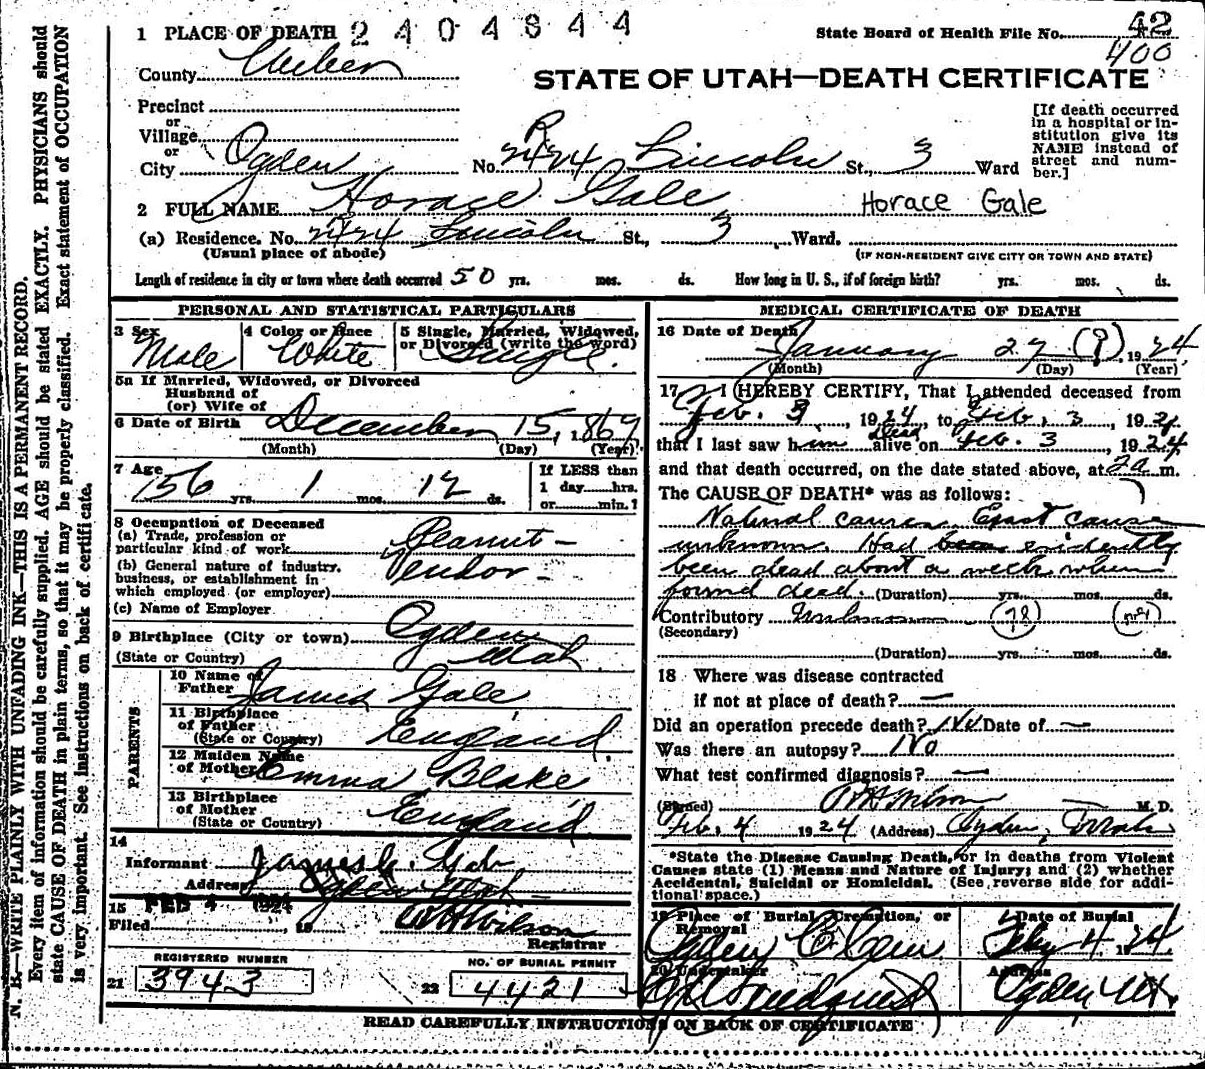 1 PLACE OF DEATH 2404844
State Board of Health File No. 42
400
County Weber
STATE OF UTAH—DEATH CERTIFICATE
Precinct
or
Village
or
City Ogden No. R 2424 Lincoln St., 3 Ward
[If death occurred
in a hospital or in-
stitution give its
NAME instead of
street and num-
ber.]
2 FULL NAME Horace Gale Horace Gale
(a) Residence. No. 2424 Lincoln St., 3 Ward.
(Usual place of abode) (IF NON-RESIDENT GIVE CITY OR TOWN AND STATE)
Length of residence in city or town where death occurred 50 yrs. mos. ds. How long in U. S., if of foreign birth? yrs. mos. ds.
PERSONAL AND STATISTICAL PARTICULARS
3 Sex Male
4 Color or Race White
5 Single, Married, Widowed,
or Divorced (write the word) Single
5a If Married, Widowed, or Divorced
Husband of
(or) Wife of
6 Date of Birth December 15, 1867
(Month) (Day) (Year)
7 Age 56 yrs. 1 mos. 12 ds.
If LESS than
1 day hrs.
or min.?
8 Occupation of Deceased
(a) Trade, profession or
particular kind of work Peanut-
(b) General nature of industry, Vendor-
business, or establishment in
which employed (or employer)
(c) Name of Employer
9 Birthplace (City or town) Ogden
(State or Country) Utah
PARENTS
10 Name of
Father James Gale
11 Birthplace
of Father England
(State or Country)
12 Maiden Name
of Mother Emma Blake
13 Birthplace
of Mother England
(State or Country)
14
Informant James Gale
Address Ogden Utah
15 FEB 4 1924
Filed 19 W H Wilson
Registrar
REGISTERED NUMBER
21 3943
NO. OF BURIAL PERMIT
22 4421
MEDICAL CERTIFICATE OF DEATH
16 Date of Death
January 27 (?) 1924
(Month) (Day) (Year)
17 I HEREBY CERTIFY, That I attended deceased from
Feb. 3, 1924, to Feb. 3, 1924
that I last saw him Dead alive on Feb. 3, 1924
and that death occurred, on the date stated above, at 2 a m.
The CAUSE OF DEATH* was as follows:
Natural causes. Exact cause
unknown. Had been evidently
been dead about a week when
found dead. (Duration) yrs. mos. ds.
Contributory Unknown (78)
(Secondary)
(Duration) yrs. mos. ds.
18 Where was disease contracted
if not at place of death? —
Did an operation precede death? No Date of —
Was there an autopsy? No
What test confirmed diagnosis? —
(Signed) M. D.
Feb, 4 1924 (Address) Ogden, Utah
*State the Disease Causing Death, or in deaths from Violent
Causes state (1) Means and Nature of Injury; and (2) whether
Accidental, Suicidal or Homicidal. (See reverse side for addi-
tional space.)
19 Place of Burial, Cremation, or
Removal
Ogden C Cem
Date of Burial
Feby 4 1924
20 Undertaker
Address
Ogden Ut.
READ CAREFULLY INSTRUCTIONS ON BACK OF CERTIFICATE
N. B.—WRITE PLAINLY WITH UNFADING INK—THIS IS A PERMANENT RECORD.
Every item of information should be carefully supplied. AGE should be stated EXACTLY. PHYSICIANS should
state CAUSE OF DEATH in plain terms, so that it may be properly classified. Exact statement of OCCUPATION
is very important. See instructions on back of certificate.